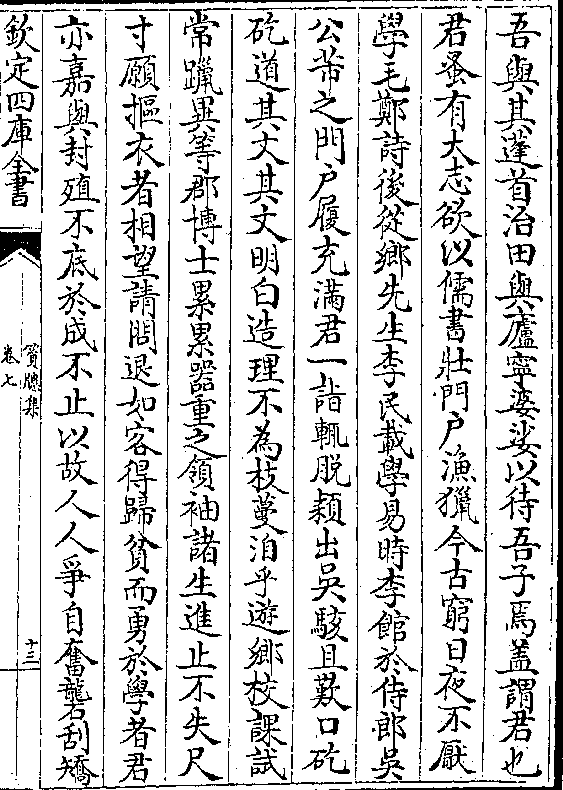 吾與其蓬首治田與廬寧婆娑以待吾子焉葢謂君也
君蚤有大志欲以儒書壯門户漁獵今古窮日夜不厭
學毛鄭詩後從鄉先生李民載學易時李館於侍郎吳
公芾之門户屨充滿君一詣輒脱頴出吳駭且歎口矻
矻道其丈其丈明白造理不為枝蔓洎乎遊鄉校課試
常躐異等郡博士累累器重之領袖諸生進止不失尺
寸願摳衣者相望請問退如客得歸貧而勇於學者君
亦嘉與封殖不底於成不止以故人人爭自奮礲刮矯
欽定四庫全書
篔牕集
卷七
十三